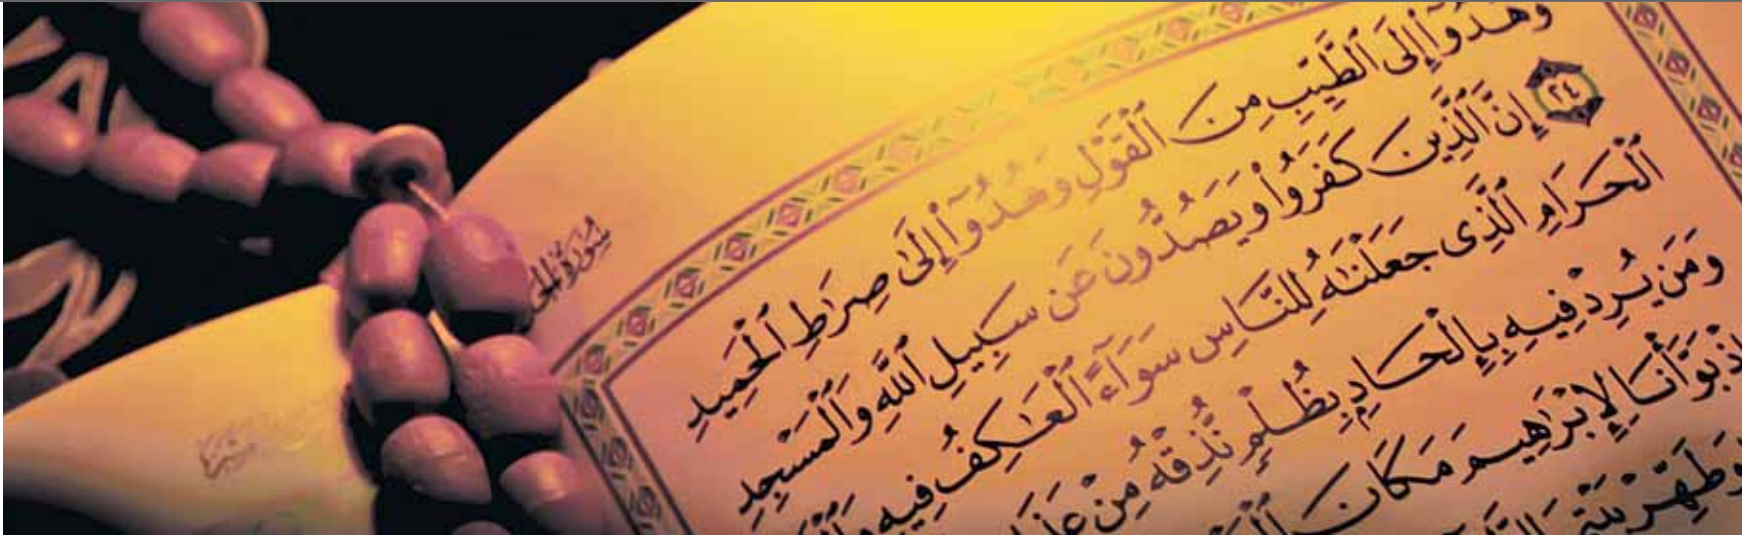 سُورَةُ
وَهُدُوٓا۟ إِلَى ٱلطَّيِّبِ مِنَ ٱلْقَوْلِ وَهُدُوٓا۟ إِلَىٰ صِرَٰطِ ٱلْحَمِيدِ
٢٤ إِنَّ ٱلَّذِينَ كَفَرُوا۟ وَيَصُدُّونَ عَن سَبِيلِ ٱللَّهِ وَٱلْمَسْجِدِ
ٱلْحَرَامِ ٱلَّذِى جَعَلْنَٰهُ لِلنَّاسِ سَوَآءً ٱلْعَٰكِفُ فِيهِ
وَمَن يُرِدْ فِيهِ بِإِلْحَادٍۭ بِظُلْمٍ نُّذِقْهُ مِنْ
إِذْ بَوَّأْنَا لِإِبْرَٰهِيمَ مَكَانَ
وَطَهِّرْ بَيْتِىَ